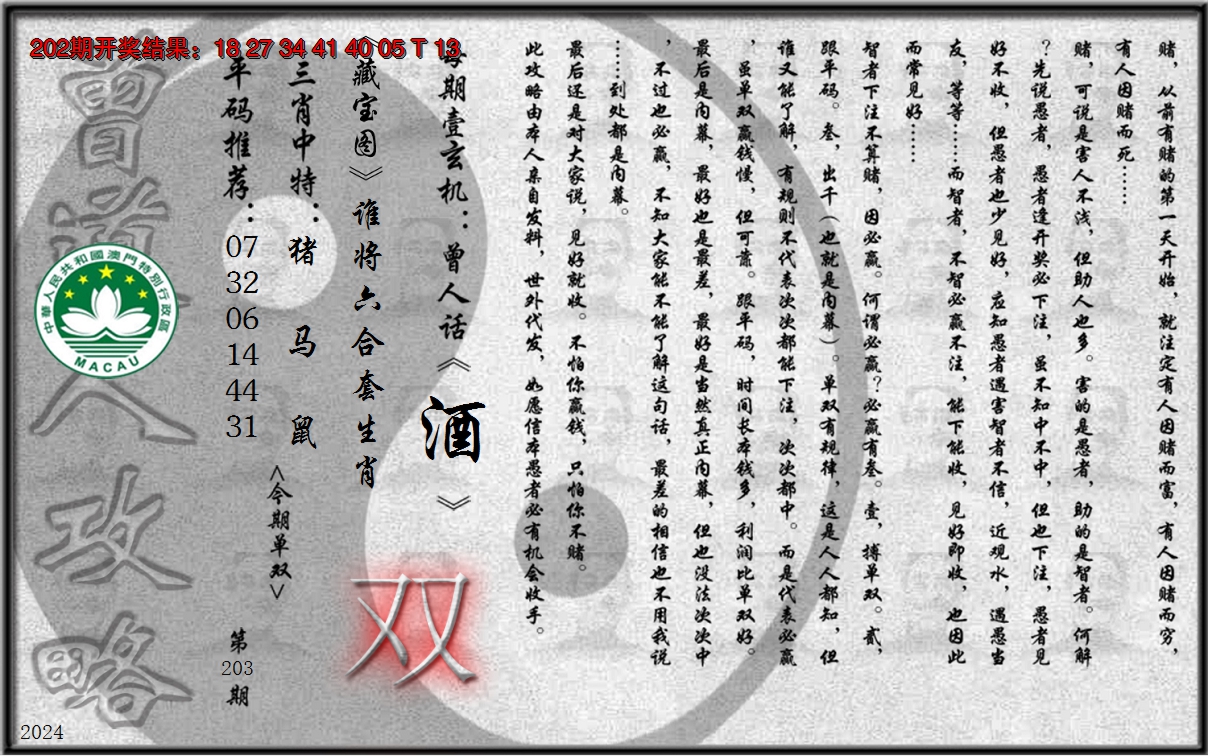 202期开奖结果：18 27 34 41 40 05 T 13
赌，从前有赌的第一天开始，就注定有人因赌而富，有人因赌而穷，
有人因赌而死……
赌，可说是害人不浅，但助人也多。害的是愚者，助的是智者。何解
？先说愚者，愚者逢开奖必下注，虽不知中不中，但也下注，愚者见
好不收，但愚者也少见好，应知愚者遇害智者不信，近观水，遇愚当
友，等等……而智者，不智必赢不注，能下能收，见好即收，也因此
而常见好……
智者下注不算赌，因必赢。何谓必赢？必赢有叁。壹，搏单双。贰，
跟平码。叁，出千（也就是内幕）。单双有规律，这是人人都知，但
谁又能了解，有规则不代表次次都能下注，次次都中。而是代表必赢
，虽单双赢钱慢，但可靠。跟平码，时间长本钱多，利润比单双好。
最后是内幕，最好也是最差，最好是当然真正内幕，但也没法次次中
，不过也必赢，不知大家能不能了解这句话，最差的相信也不用我说
……到处都是内幕。
最后还是对大家说，见好就收。不怕你赢钱，只怕你不赌。
此攻略由本人亲自发料，世外代发，如愿信本愚者必有机会收手。
每期壹玄机：曾人话《酒》
《藏宝图》谁将六合套生肖
双
三肖中特：猪 马 鼠
<今期单双>
平码推荐：07 32 06 14 44 31
第203期
曾道人攻略
中華人民共和國澳門特別行政區
MACAU
2024